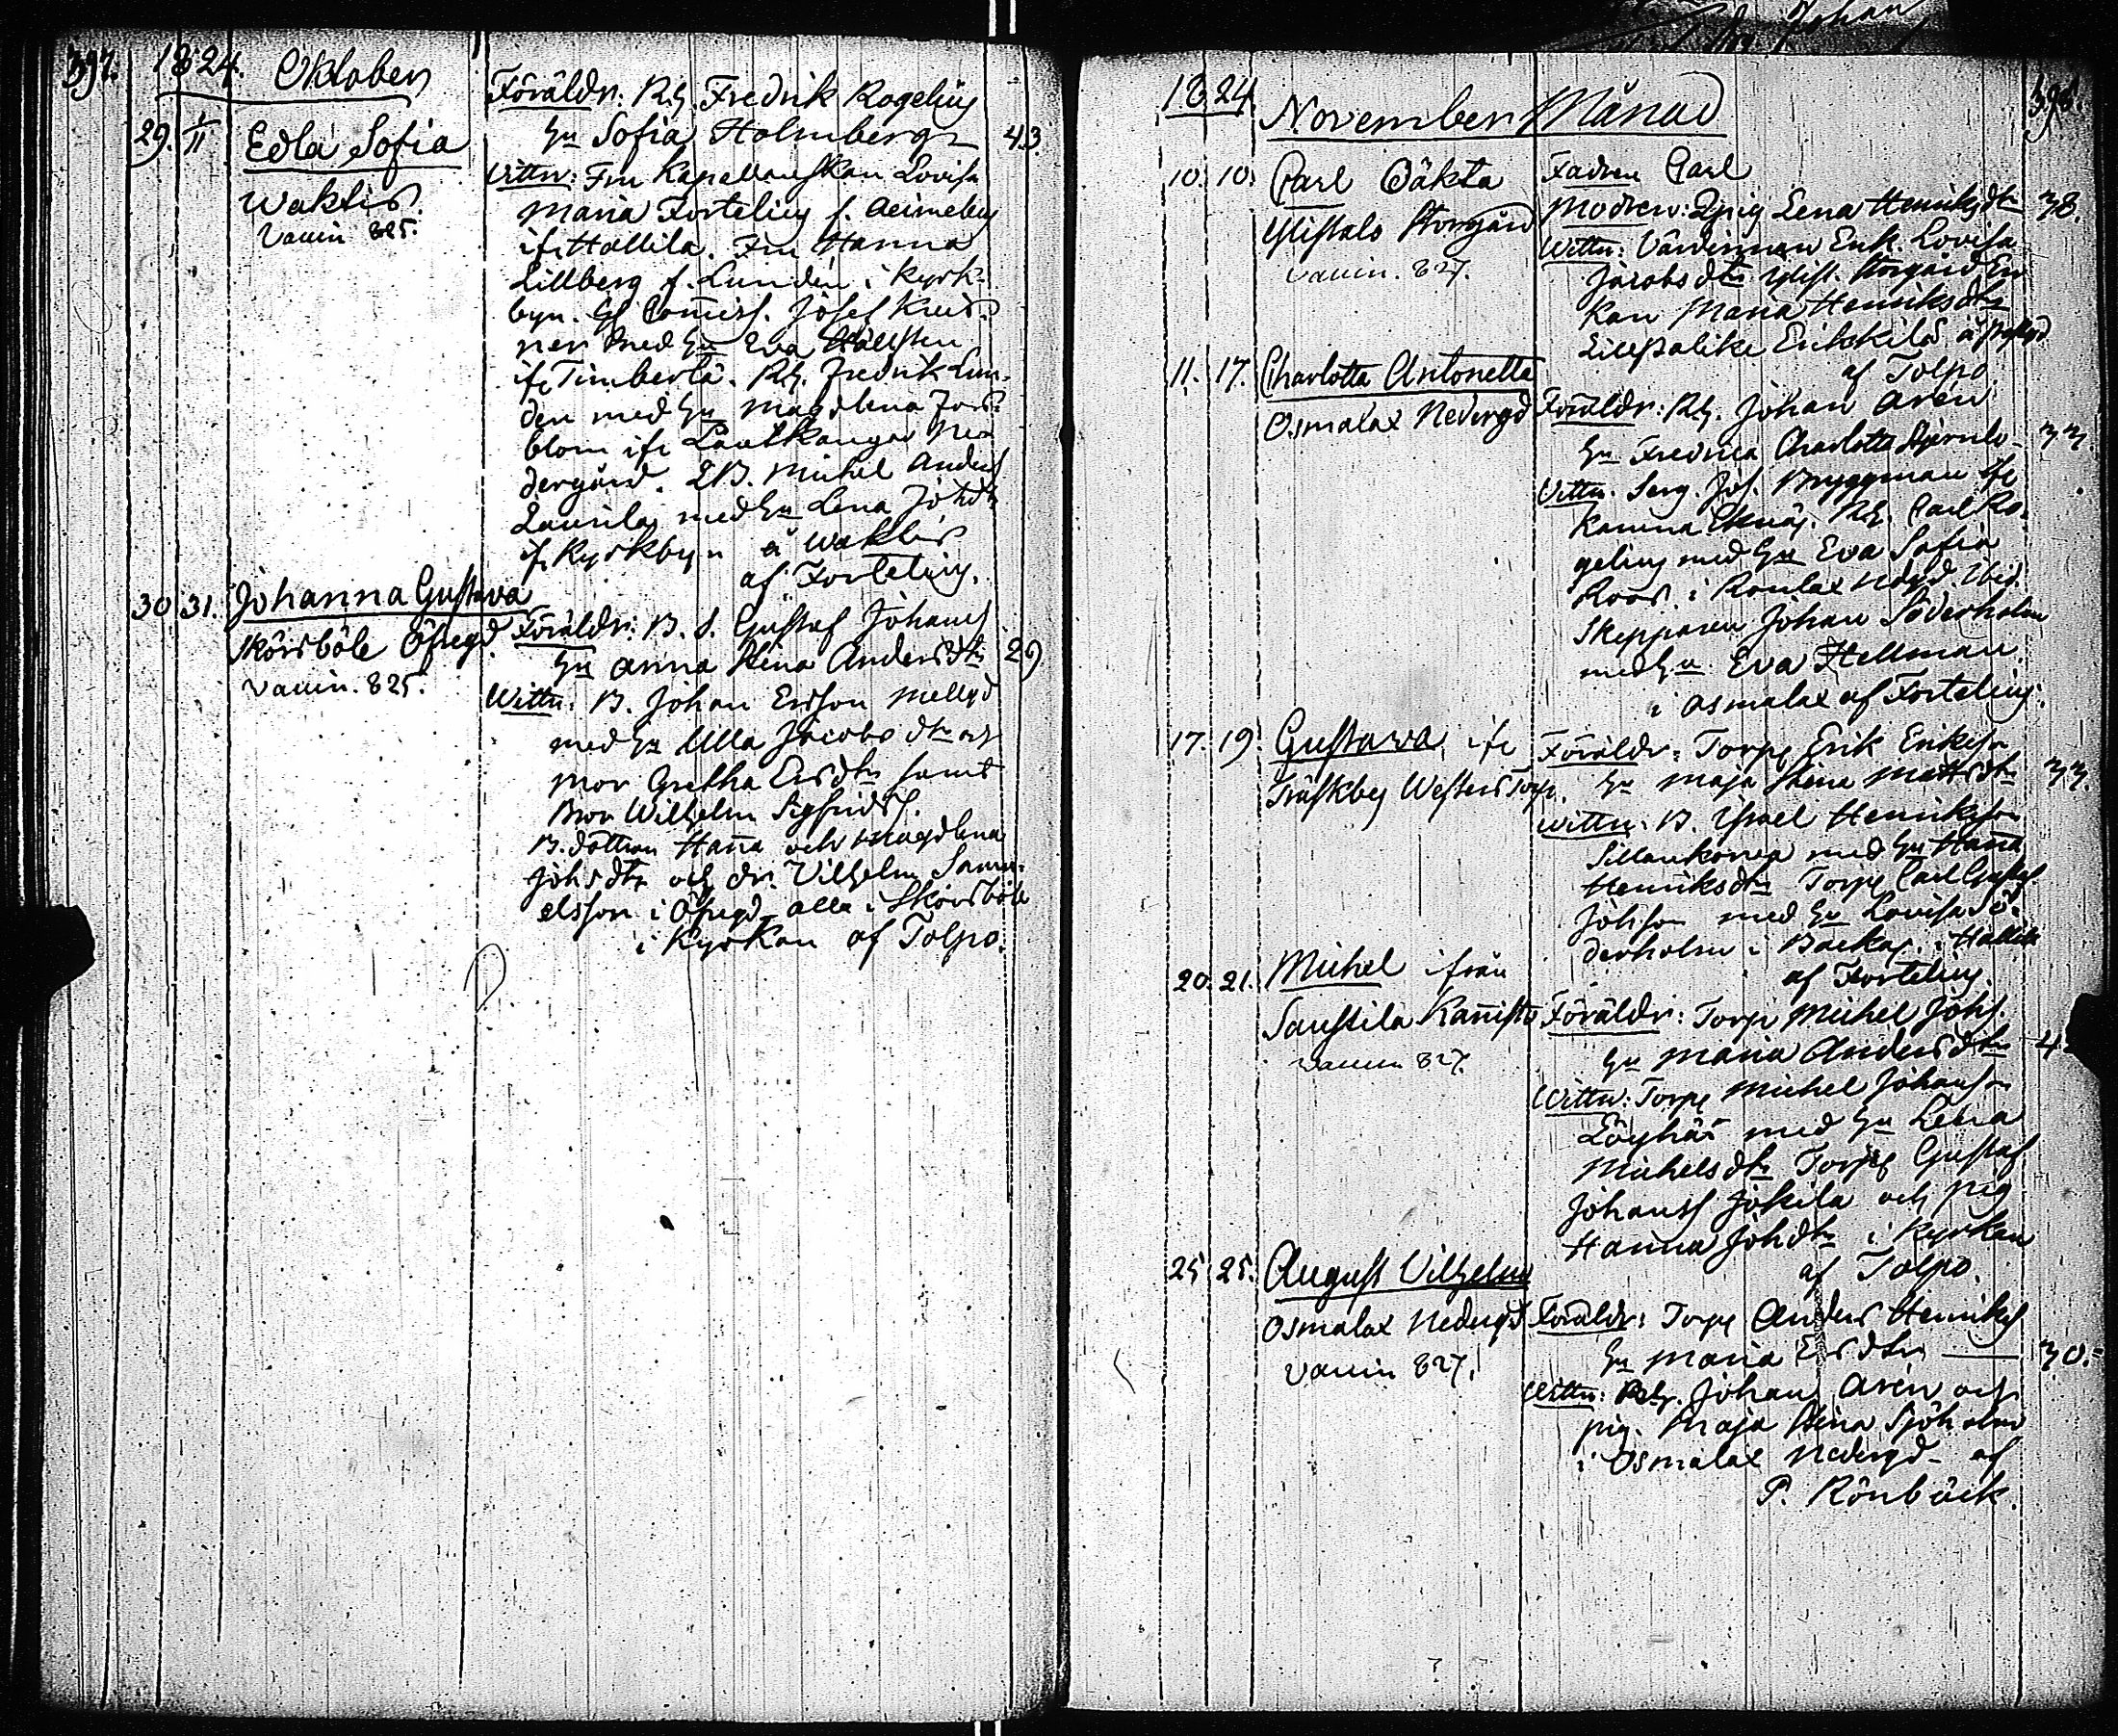 397.
1824. Oktober
29. 1/11 Edla Sofia
Waktis.
Vaccin. 825.
Föräldr: Rg. Fredrik Rogelius
Hu Sofia Holmberg 43.
Wittn: Fru Kapellanskan Lovisa
Maria Fortelius f.
ifr Hallila. Fru Hanna
Lillberg f. Lundén i Kyrk-
byn. Josef
nen med Hu Eva Hällsten
ifr Timberlä. Rg. Fredrik Lun-
den med Hu Magdlena Fors-
blom ifr Lautkangas Ne-
dergård. Michel Anders
Laurila med Hu Lena Johdtr
ifr Kyrkbyn å Waktis
af Fortelius.
30 31. Johanna Gustava
Skörsböle Öfregd.
Vaccin. 825.
Föräldr: B. S. Gustaf Johans
Hu Anna Stina Andersdtr 29
Wittn: B. Johan Ersson Mellgd
med Hu Ulla Jacobsdtr och
Mor Gretha Ersdtr samt
Bror Wilhelm Sigfrids
B. dottren Hanna och Magdlena
Johsdtr och dr. Vilhelm Samu-
elsson i Öfregd alla i Skörsböle
i Kyrkan af Tolpo.
398.
1824 November Månad
10. 10. Carl Oäkta
Storgård
Vaccin. 827.
Fadren Carl
Modren: Lena Henriksdtr 38.
Wittn: Värdinnan Enk. Lovisa
Jacobsdtr Storgård En-
kan Maria Henriksdtr
Erikkilä
af Tolpo.
11. 17. Charlotta Antonetta
Osmalax Nedergd
Föräldr: Rg. Johan Arén
Hu Fredrica Charlotta 33.
Wittn. Serg. Joh. Bryggman ifr
Rg. Carl Ro-
gelius med Hu Eva Sofia
Roos. i Ronlax Ndgd Ibid.
Skepparen Johan Söderholm
med Hu Eva Hellman
i Osmalax af Fortelius.
17. 19. Gustava ifr
Träskby Westers Torp.
Föräldr: Torp Erik Eriksson
Hu Maja Stina Mattsdtr 33.
Wittn. B. Israel Henriksson
Sillankorva med Hu Hanna
Henriksdtr Torp Carl Gustaf
Johsson med Hu Lovisa Sö-
derholm i Backas. i Hallila
af Fortelius.
20. 21. Michel ifrån
Sauskila
Vaccin 827.
Föräldr: Torp Michel Johs.
Hu Maria Andersdtr
Wittn: Torp Michel Johansson
med Hu Lena
Michelsdtr Torp Gustaf
Johanss Jokila och pig
Hanna Johdtr i Kyrkan
af Tolpo.
25 25. August Vilhelm
Osmalax Nedergd
Vaccin 827.
Föräldr: Torp Anders Henriks
Hu Maria Ersdtr 30.
Wittn: Rg. Johan Arén och
pig. Maja Stina Sjöholm
i Osmalax Nedergd af
P. Rönbäck.